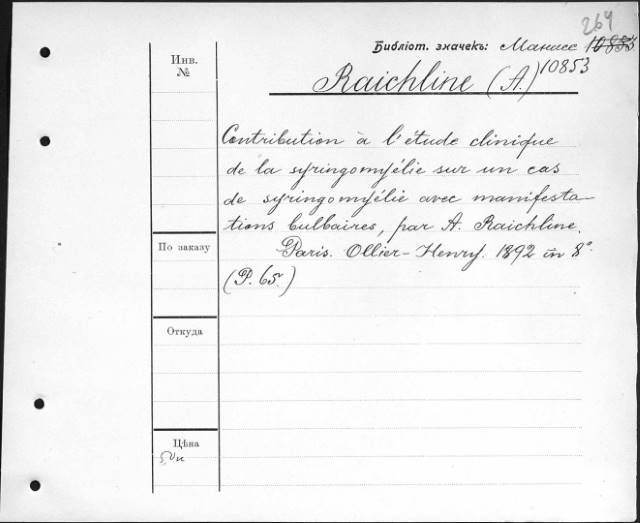 264
Библіот. значекъ: Манисс 10853
Raichline (A.) 10853
Инв.
№
Contribution à l'étude clinique
de la syringomyélie sur un cas
de syringomyélie avec manifesta-
tions bulbaires, par A. Raichline.
Paris. Ollier-Henry. 1892 in 8°
(P. 65.)
По заказу
Откуда
Цѣна